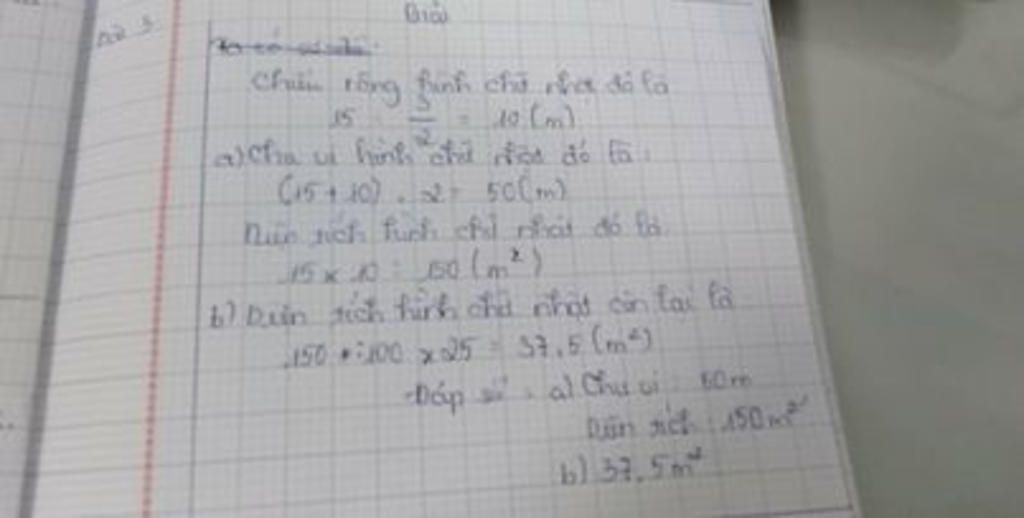 Giải
Bài 3
Chiều rộng hình chữ nhật đó là
15 : 3/2 = 10 (m)
a) Chu vi hình chữ nhật đó là :
(15 + 10) . 2 = 50 (m)
Diện tích hình chữ nhật đó là
15 x 10 = 150 (m²)
b) Diện tích hình chữ nhật còn lại là
150 : 100 x 25 = 37,5 (m²)
Đáp số : a) Chu vi : 50m
Diện tích : 150m²
b) 37,5m²